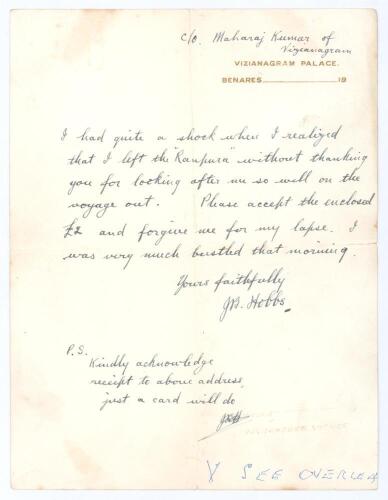 c/o. Maharaj Kumar of
Vizianagram
VIZIANAGRAM PALACE.
BENARES 19
I had quite a shock when I realized
that I left the "Ranpura" without thanking
you for looking after me so well on the
voyage out. Please accept the enclosed
£2 and forgive me for my lapse. I
was very much bustled that morning.
Yours faithfully
J.B. Hobbs.
P.S.
Kindly acknowledge
receipt to above address,
just a card will do
JBH
SEE OVERLEAF